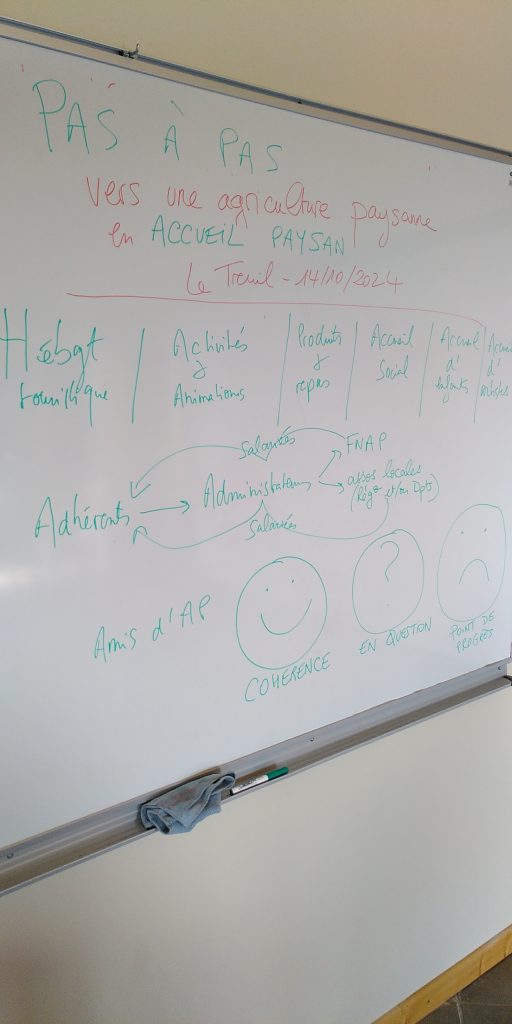 PAS À PAS
vers une agriculture paysanne
en ACCUEIL PAYSAN
Le Treuil - 14/10/2024
Hébgt touristique
Activités & Animations
Produits & repas
Accueil Social
Accueil d'enfants
Accueil d'artistes
Salariés
FNAP
Adhérents
Administrateurs
assos locales
(Régo et/ou Dpts)
Salariés
Amis d'AP
COHÉRENCE
EN QUESTION
POINT DE PROGRÈS